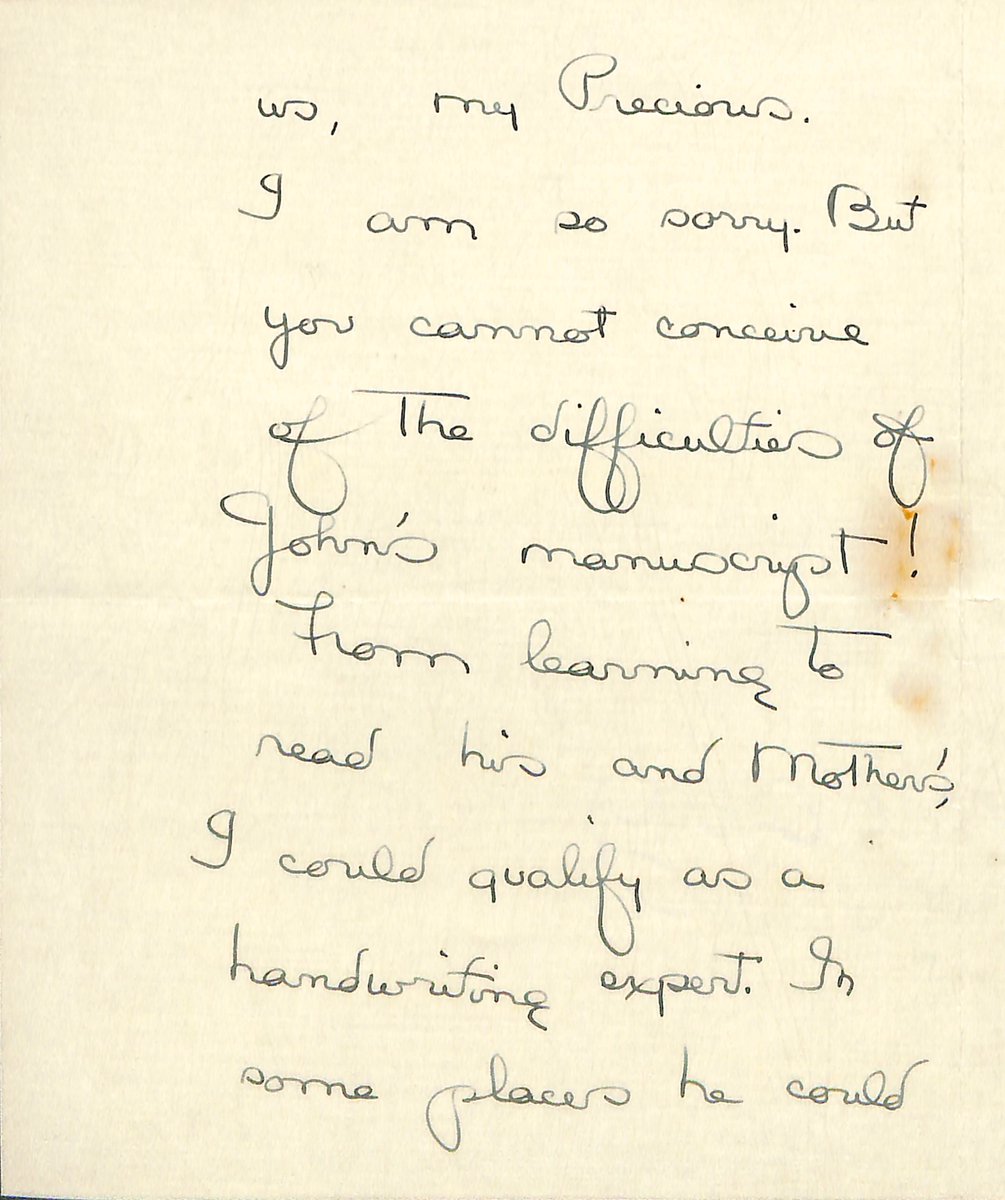 us, my Precious.
I am so sorry. But
you cannot conceive
of the difficulties of
John's manuscript!
From learning to
read his and Mother's,
I could qualify as a
handwriting expert. In
some places he could